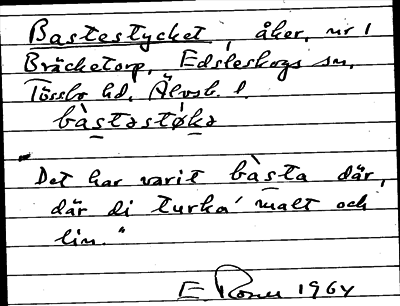 Bastestycket, åker, nr 1
Bräcketorp, Edsleskogs sn,
Tössbo hd, Älvsb. l.
bàstəstøkə
"Det har varit bàsta där,
där di turka' malt och
lin."
E 1964